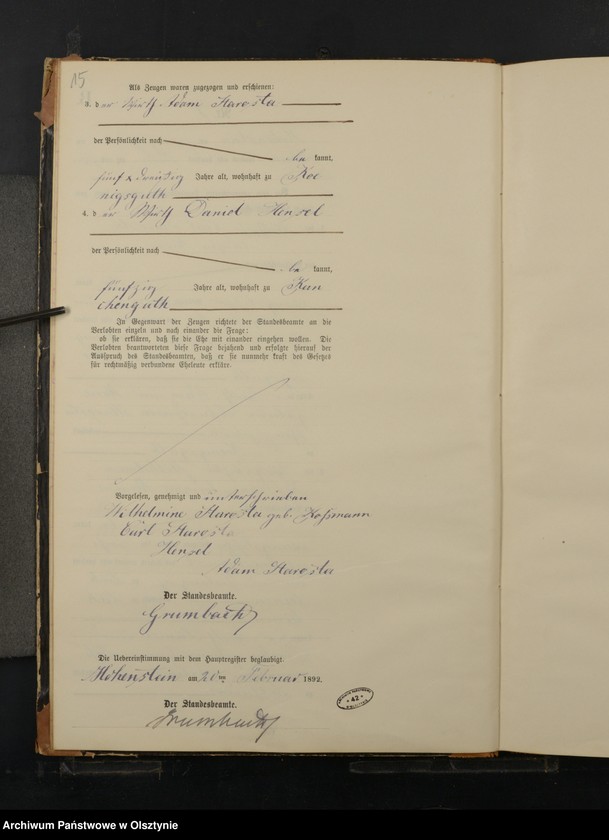 15
Als Zeugen waren zugezogen und erschienen:
3. der Wirth Adam Starosta
der Persönlichkeit nach
be kannt,
fünf u dreißig Jahre alt, wohnhaft zu Koe
nigsguth
4. der Wirth Daniel Hensel
der Persönlichkeit nach
be kannt,
fünfzig Jahre alt, wohnhaft zu Kun
chenguth
In Gegenwart der Zeugen richtete der Standesbeamte an die
Verlobten einzeln und nach einander die Frage:
ob sie erklären, daß sie die Ehe mit einander eingehen wollen. Die
Verlobten beantworteten diese Frage bejahend und erfolgte hierauf der
Ausspruch des Standesbeamten, daß er sie nunmehr kraft des Gesetzes
für rechtmäßig verbundene Eheleute erkläre.
Vorgelesen, genehmigt und unterschrieben
Wilhelmine Starosta geb. Koßmann
Carl Starosta
Hensel
Adam Starosta
Der Standesbeamte.
Grumbach
Die Uebereinstimmung mit dem Hauptregister beglaubigt.
Hohenstein am 20 ten Februar 1892.
Der Standesbeamte.
Grumbach
42
Archiwum Państwowe w Olsztynie